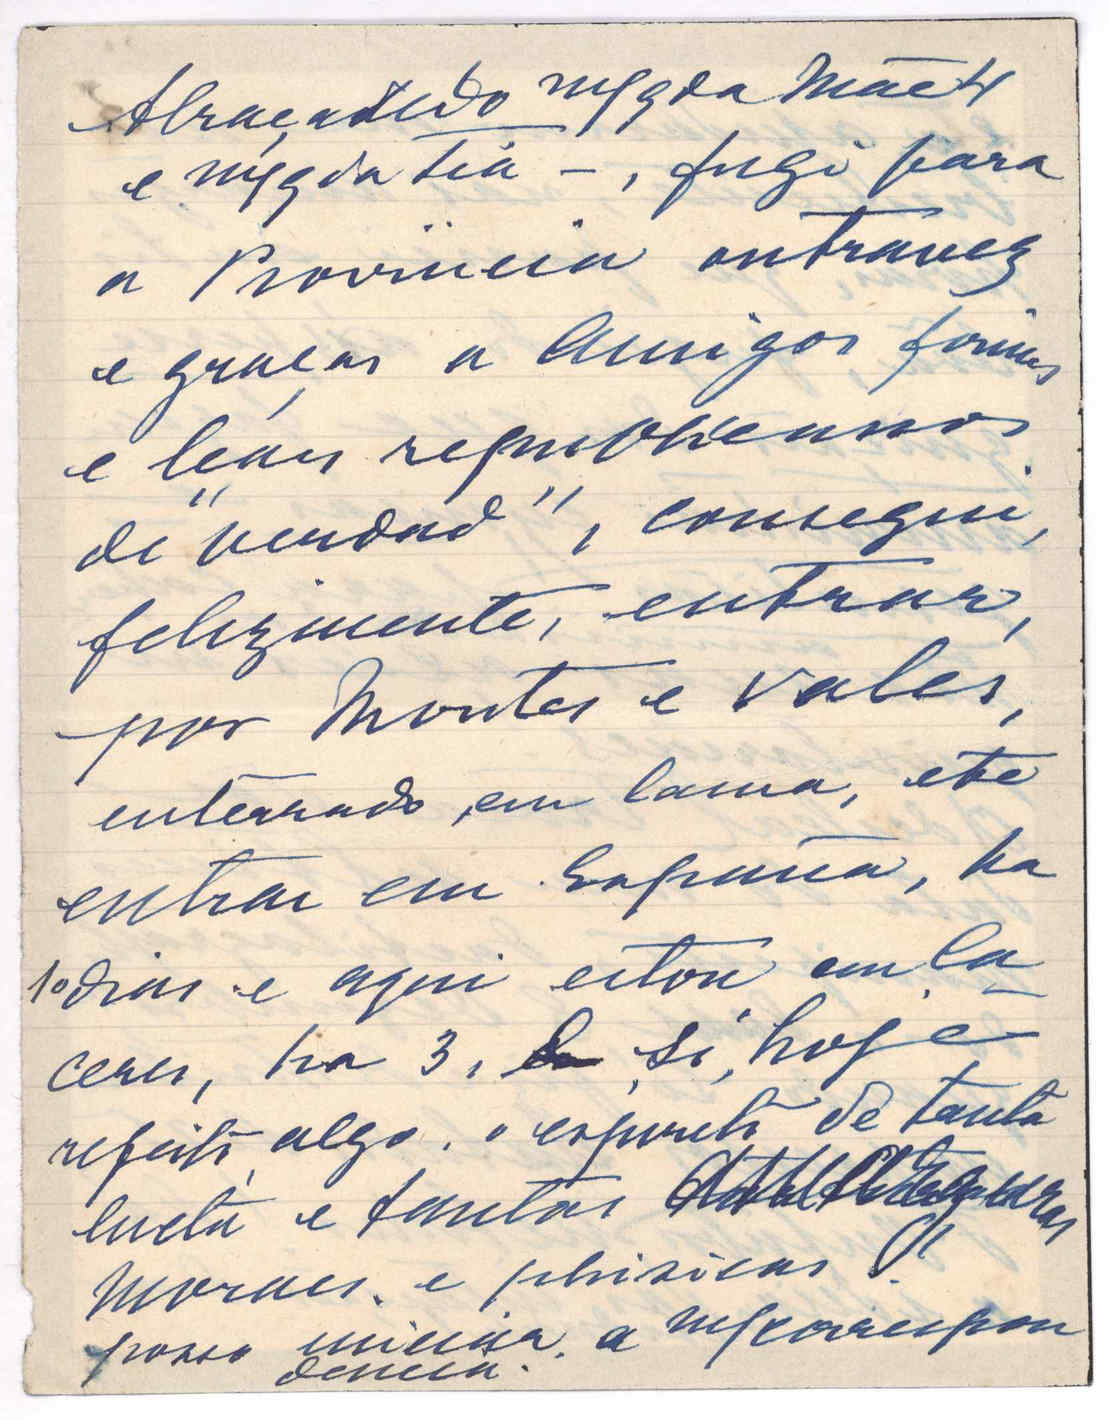 Abraçando mg.da Mãe
e mg.da tia –, fugi para
a Provincia outravez
e graças a Amigos firmes
e leaes republicanos
de "verdad", consegui,
felizmente, entrar,
por Montes e Vales,
enterrado, em lama, etc
entrar em España, ha
10 dias e aqui estou em Ca
ceres, ha 3, si, hoje
refeito, algo, o espirito de tanta
lucta e tantas
Moraes. e phisicas
posso iniciar. a m/correspon
dencia.